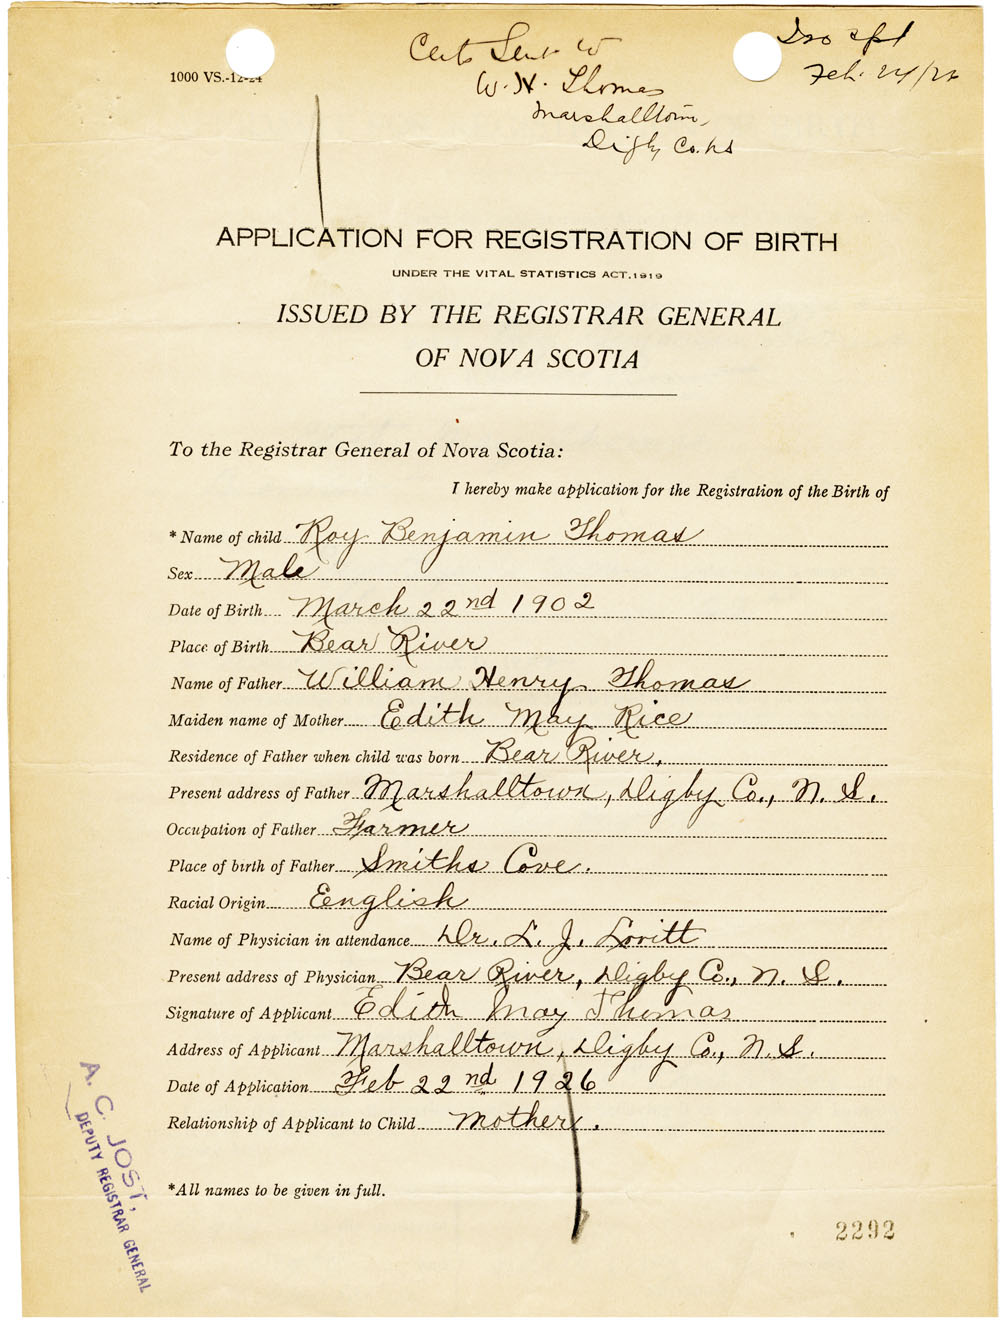 1000 VS.-12-24
Certs Sent to
W. H. Thomas
Marshalltown,
Digby Co. N S
Feb. 24/26
APPLICATION FOR REGISTRATION OF BIRTH
UNDER THE VITAL STATISTICS ACT, 1919
ISSUED BY THE REGISTRAR GENERAL
OF NOVA SCOTIA
To the Registrar General of Nova Scotia:
I hereby make application for the Registration of the Birth of
*Name of child Roy Benjamin Thomas
Sex Male
Date of Birth March 22nd 1902
Place of Birth Bear River
Name of Father William Henry Thomas
Maiden name of Mother Edith May Rice
Residence of Father when child was born Bear River.
Present address of Father Marshalltown, Digby Co., N. S.
Occupation of Father Farmer
Place of birth of Father Smiths Cove.
Racial Origin English
Name of Physician in attendance Dr. L. J. Lovitt
Present address of Physician Bear River, Digby Co., N. S.
Signature of Applicant Edith May Thomas
Address of Applicant Marshalltown, Digby Co., N. S.
Date of Application Feb 22nd 1926
Relationship of Applicant to Child Mother.
*All names to be given in full.
A. C. JOST,
DEPUTY REGISTRAR GENERAL
2292